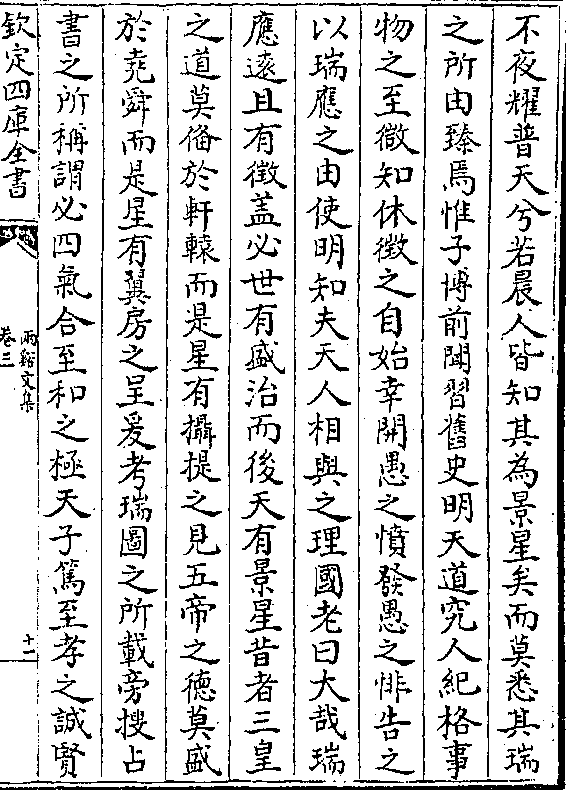 不夜耀普天兮若晨人皆知其為景星矣而莫悉其瑞
之所由臻焉惟子博前聞習舊史明天道究人紀格事
物之至微知休徴之自始幸開愚之憤發愚之悱告之
以瑞應之由使明知夫天人相與之理國老曰大哉瑞
應逺且有徴盖必世有盛治而後天有景星昔者三皇
之道莫僃於軒轅而是星有攝提之見五帝之徳莫盛
於堯舜而是星有翼房之呈爰考瑞圖之所載旁搜占
書之所稱謂必四氣合至和之極天子篤至孝之誠賢
欽定四庫全書
兩谿文集
卷三
十一